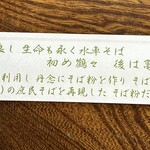 良し 生命も永く水車そば
初め鶴さ 後は亀
利用し 丹念にそば粉を作り そば
)の庶民そばを再現した そば粉だ